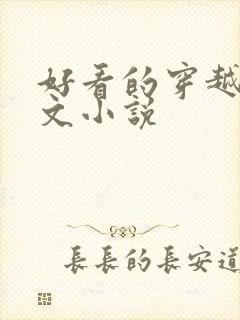 好看的穿越
文小说
長長的長安道